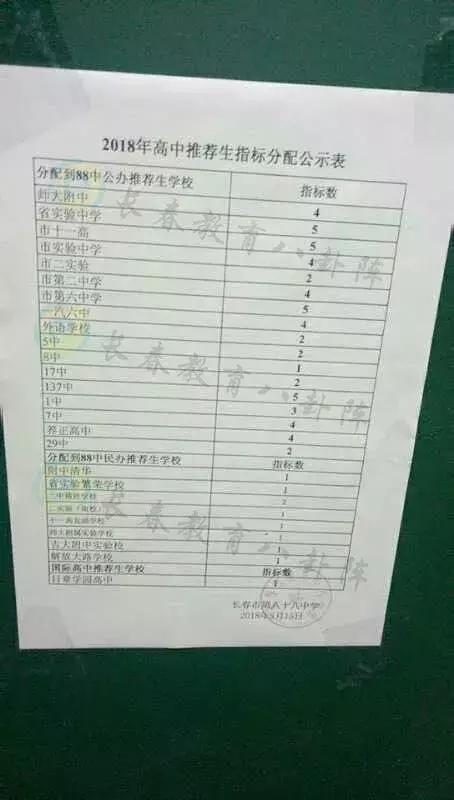 2018年高中推荐生指标分配公示表
分配到88中公办推荐生学校 指标数
师大附中 4
省实验中学 5
市十一高 5
市实验中学 4
市二实验 2
市第二中学 4
市第六中学 5
一汽六中 4
外语学校 2
5中 2
8中 1
17中 2
137中 5
1中 3
7中 4
养正高中 4
29中 2
分配到88中民办推荐生学校 指标数
附中清华 1
省实验繁荣学校 1
二中 学校 2
二实验（南校） 1
十一高 学校 1
师大附属实验学校 1
吉大附中实验校 1
解放大路学校 1
国际高中推荐生学校 指标数
日章学园高中 1
长春市第八十八中学
2018年5月15日
长春教育八卦阵
长春教育八卦阵
长春教育八卦阵